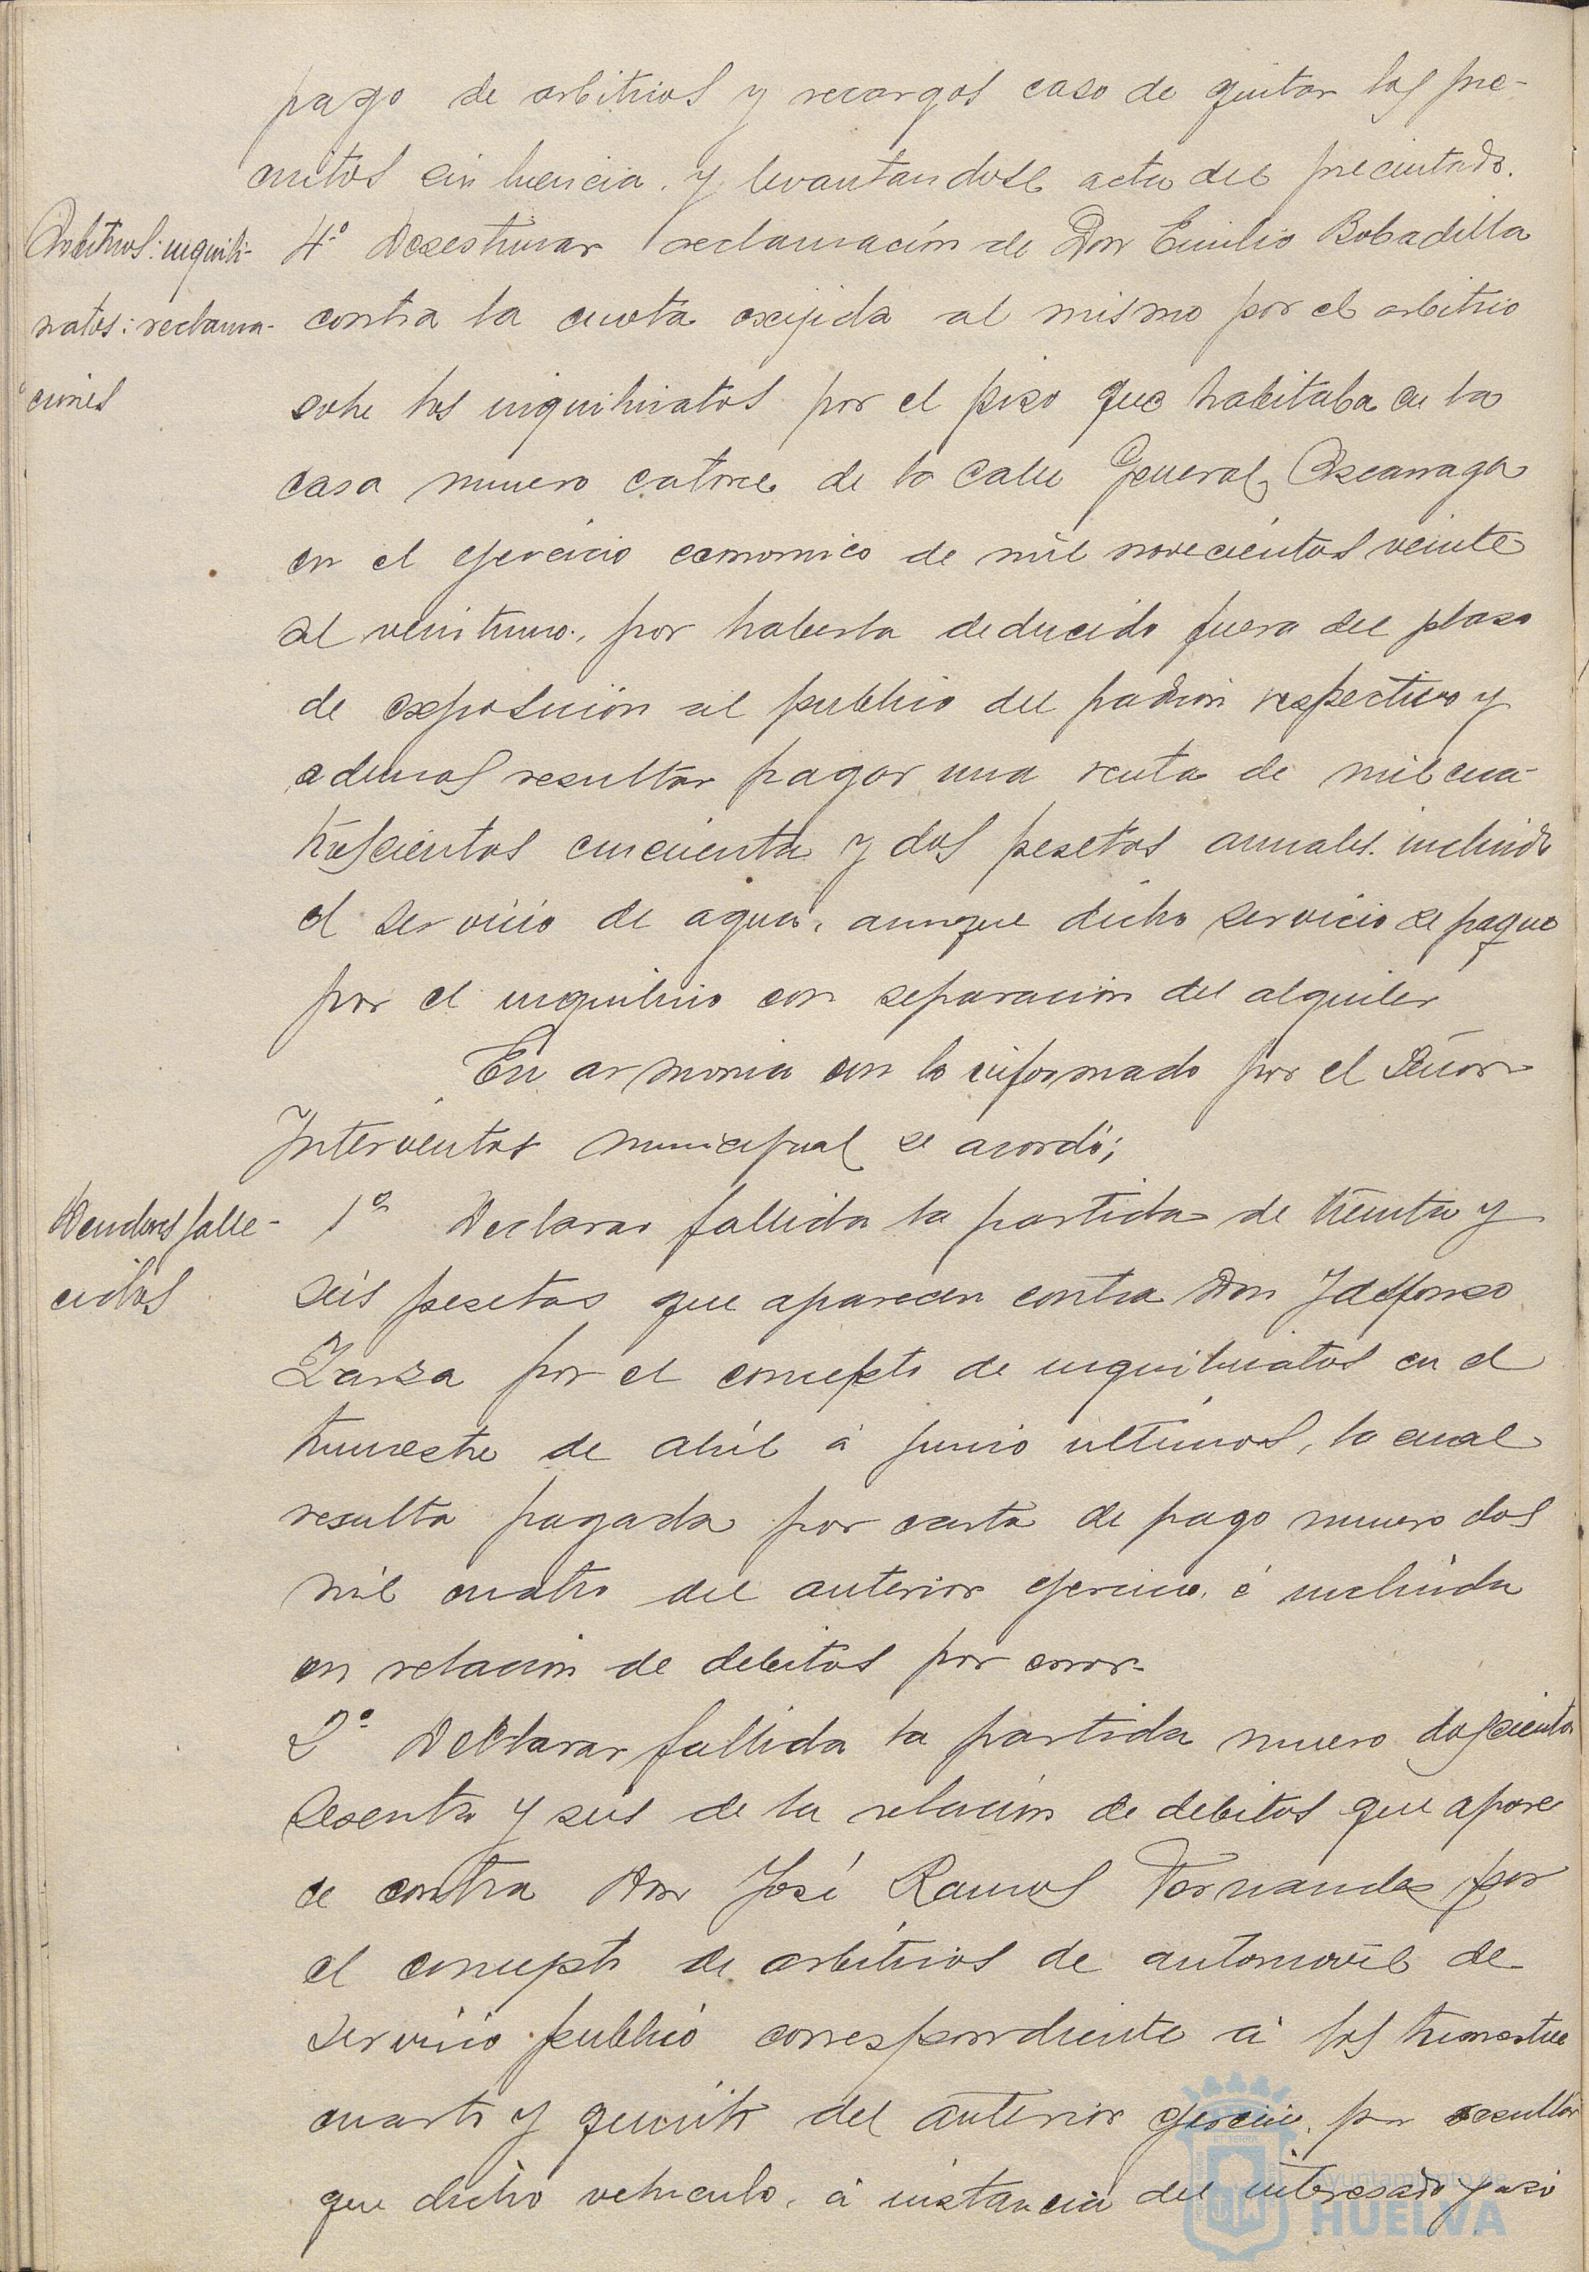 pago de arbitrios y recargos caso de quitar los pre-
cintos sin licencia, y levantandose acta del precintado.
Arbitrios: inquili-
natos: reclama-
ciones
4º Desestimar reclamación de Don Emilio Bobadilla
contra la cuota exijida al mismo por el arbitrio
sobre los inquilinatos por el piso que habitaba en la
casa numero catorce de la calle General Azcarraga
en el ejercicio economico de mil novecientos veinte
al veintiuno, por haberla deducido fuera del plazo
de exposición al publico del padron respectivo y
ademas resultar pagar una renta de mil cua-
trescientos cincuenta y dos pesetas anuales incluido
el servicio de agua, aunque dicho servicio se pague
por el inquilino con separacion del alquiler
En armonia con lo informado por el Señor
Interventor municipal se acordó;
Deudores falle-
cidos
1º Declarar fallida la partida de treinta y
seis pesetas que aparecen contra Don Ildefonso
Zarza por el concepto de inquilinatos en el
trimestre de abril á junio ultimos, la cual
resulta pagada por carta de pago numero dos
mil cuatro del anterior ejercicio, é incluida
en relacion de debitos por error
2º Declarar fallida la partida numero doscientos
sesenta y seis de la relación de debitos que apare
ce contra Don José Ramos Fernandez por
el concepto de arbitrios de automovil de
servicio publico correspondiente á los trimestres
cuarto y quinto del anterior ejercicio, por resultar
que dicho vehiculo, á instancia del interesado y asi
Ayuntamiento de
HUELVA